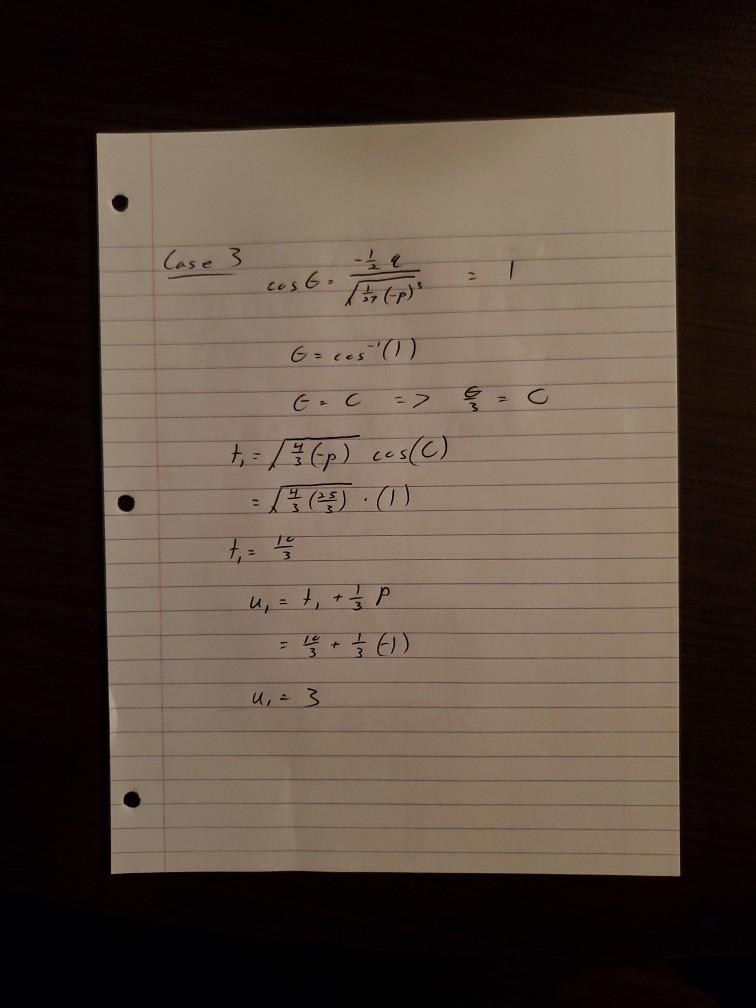 Case 3
cos θ = (-½ q) / √(1/27 (-p)³) = 1
θ = cos⁻¹(1)
θ = 0 => θ/3 = 0
t₁ = √(4/3 (-p)) cos(0)
= √(4/3 (25/3)) · (1)
t₁ = 10/3
u₁ = t₁ + 1/3 P
= 10/3 + 1/3 (-1)
u₁ = 3